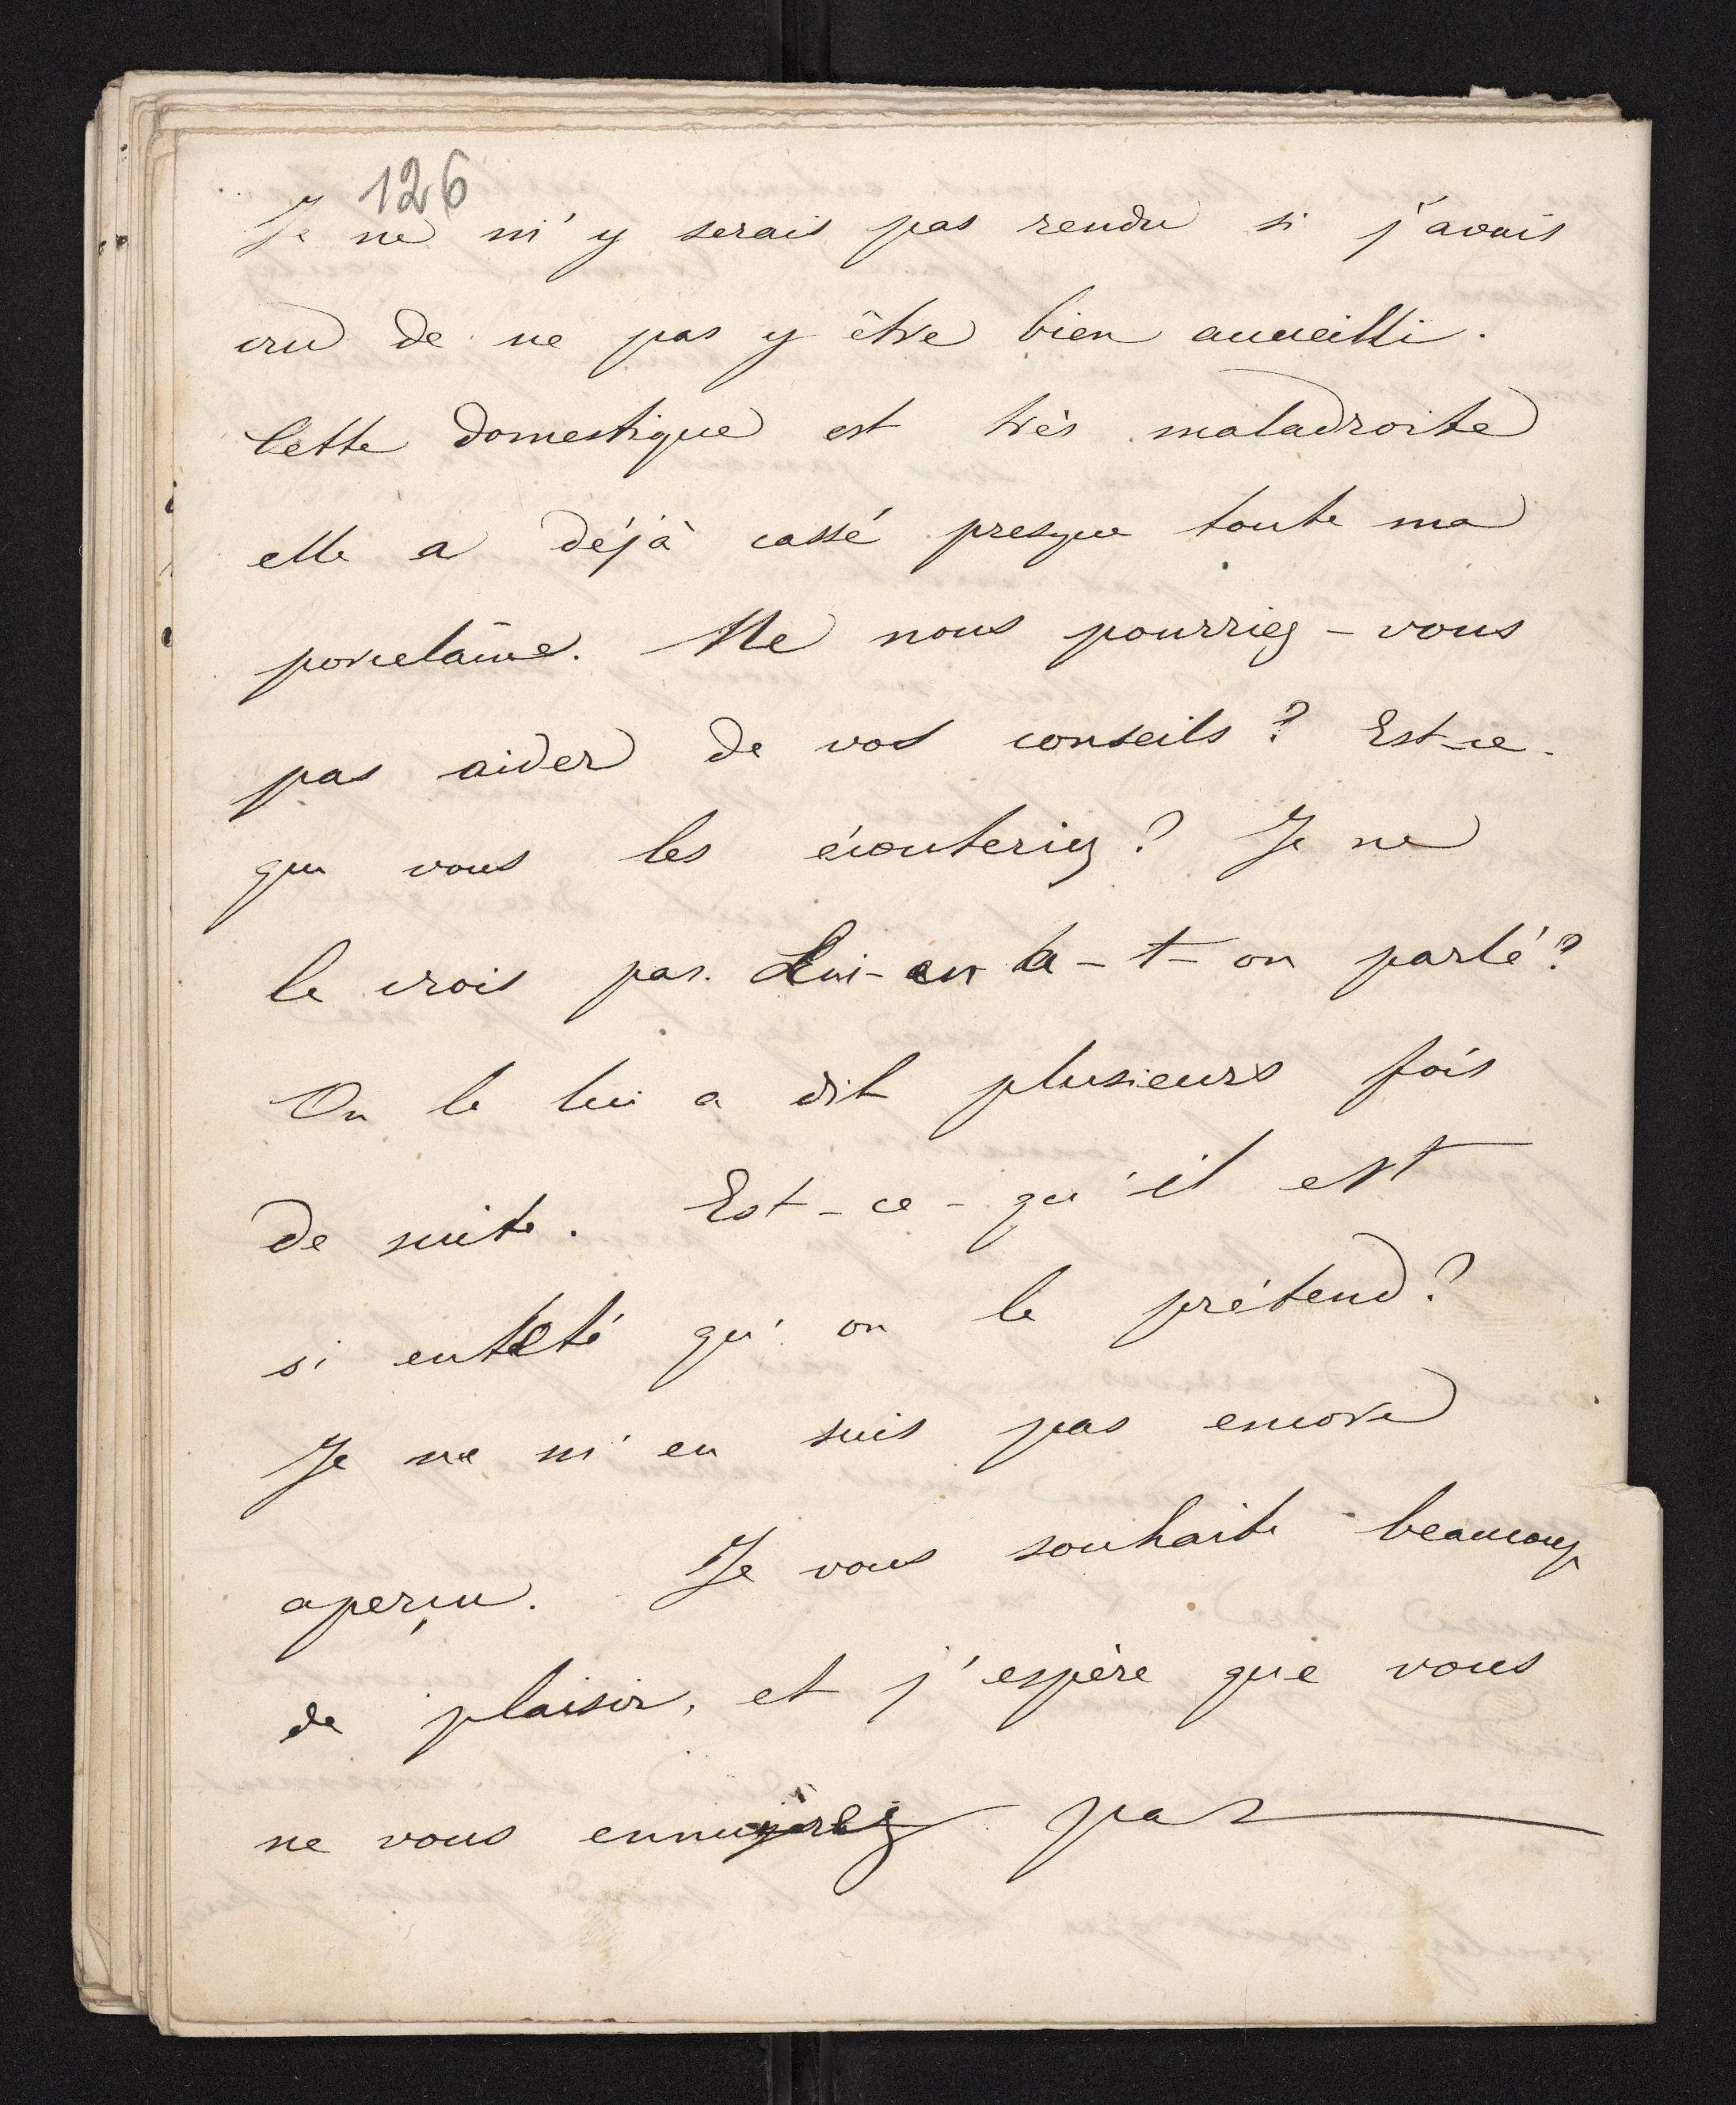 126
Je ne m'y serais pas rendu si j'avais
cru de ne pas y être bien accueilli.
Cette domestique est très maladroite
elle a déjà cassé presque toute ma
porcelaine. Ne nous pourriez-vous
pas aider de vos conseils? Est-ce-
que vous les écouteriez? Je ne
le crois pas. Lui-en a-t-on parlé?
On le lui a dit plusieurs fois
de suite. Est-ce-qu'il est
si entêté qu'on le prétend?
Je ne m'en suis pas encore
aperçu. Je vous souhaite beaucoup
de plaisir, et j'espère que vous
ne vous ennuyerez pas